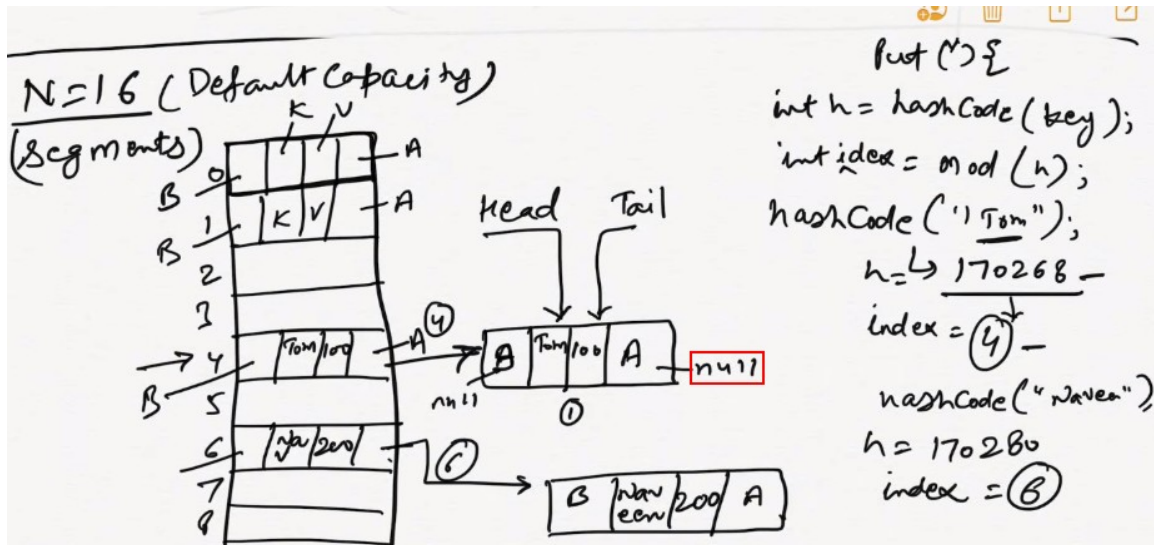 N=16 (Default Capacity)
(Segments)
K V
0 A
B
1 K V A
B
2
3
4 Tom 100 A 4
B
5
6 Na 200 6
7
8
Head Tail
B Tom 100 A
null
null
1
B Nav een 200 A
Put( ) {
int h = hashCode(key);
int idex = mod (h);
^
hashCode("Tom");
h= 170268
index = 4
hashCode("Naveen")
h= 170280
index = 6